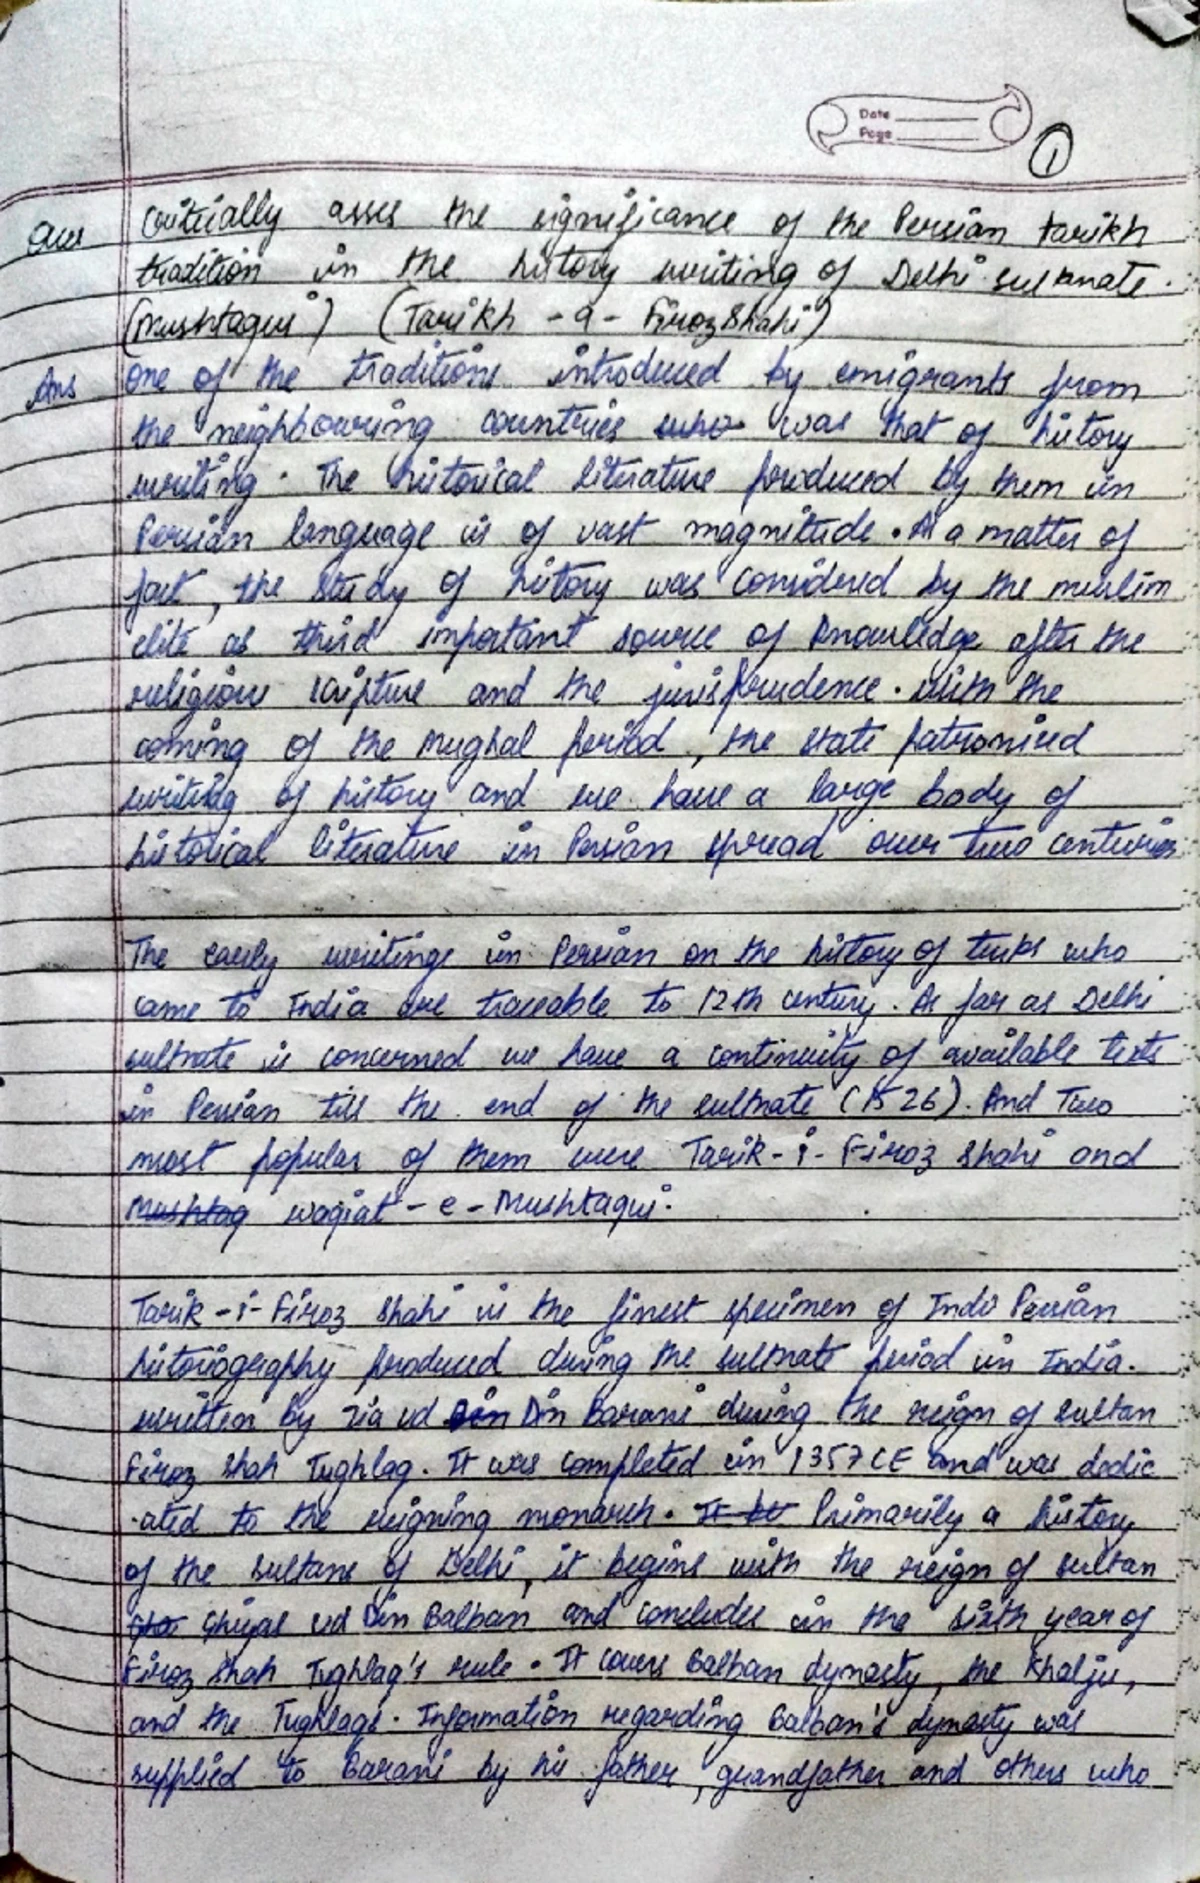 Date
Page
1
Ques Critically asses the significance of the Persian tarikh
tradition in the history writing of Delhi sultanate.
(Mushtaqui) (Tarikh - a - Firoz Shahi)
Ans One of the traditions introduced by emigrants from
the neighbouring countries who was that of history
writing. The historical literature produced by them in
Persian language is of vast magnitude. As a matter of
fact, the study of history was considered by the muslim
elite as third important source of knowledge after the
religious scripture and the jurisprudence. With the
coming of the Mughal period, the state patronised
writing of history and we have a large body of
historical literature in Persian spread over two centuries
The early writings in Persian on the history of turks who
came to India are traceable to 12th century. As far as Delhi
sultnate is concerned we have a continuity of available texts
in Persian till the end of the sultnate (1526). And Two
most popular of them were Tarik-i-Firoz Shahi and
Mushtaq waqiat-e-Mushtaqui.
Tarik-i-Firoz Shahi is the finest specimen of Indo Persian
historiography produced during the sultnate period in India.
written by Zia ud Din Din Barani during the reign of Sultan
Firoz Shah Tughlaq. It was completed in 1357 CE and was dedic
-ated to the reigning monarch. It Primarily a history
of the sultans of Delhi, it begins with the reign of sultan
Ghiyas ud Din Balban and concludes in the sixth year of
Firoz Shah Tughlaq's rule. It covers Balban dynasty, the Khaljis,
and the Tughlaqs. Information regarding Balban's dynasty was
supplied to Barani by his father, grandfather and others who